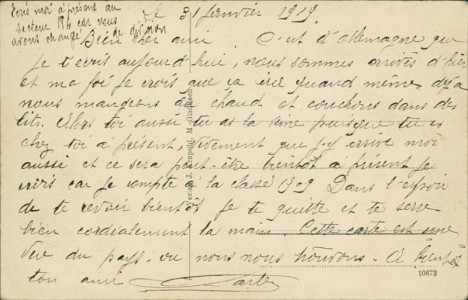 Ecris moi à présent au
secteur 84 car nous
avons changé de division
le 31 Janvier 1919.
Bien cher ami C'est d'Allemagne que
je t'écris aujourd'hui, nous sommes arrivés d'hier
et ma foi je crois que ça ira quand même déjà
nous mangeons chaud et couchons dans des
lits. Alors toi aussi tu as la puisque tu es
chez toi à présent, vivement que j'y arrive moi
aussi et ce sera peut-être bientôt à présent je
crois car je compte à la classe 1909 Dans l'espoir
de te revoir bientôt je te quitte et te serre
bien cordialement la main. Cette carte est une
vue du pays où nous nous trouvons. A bientôt
ton ami
10673